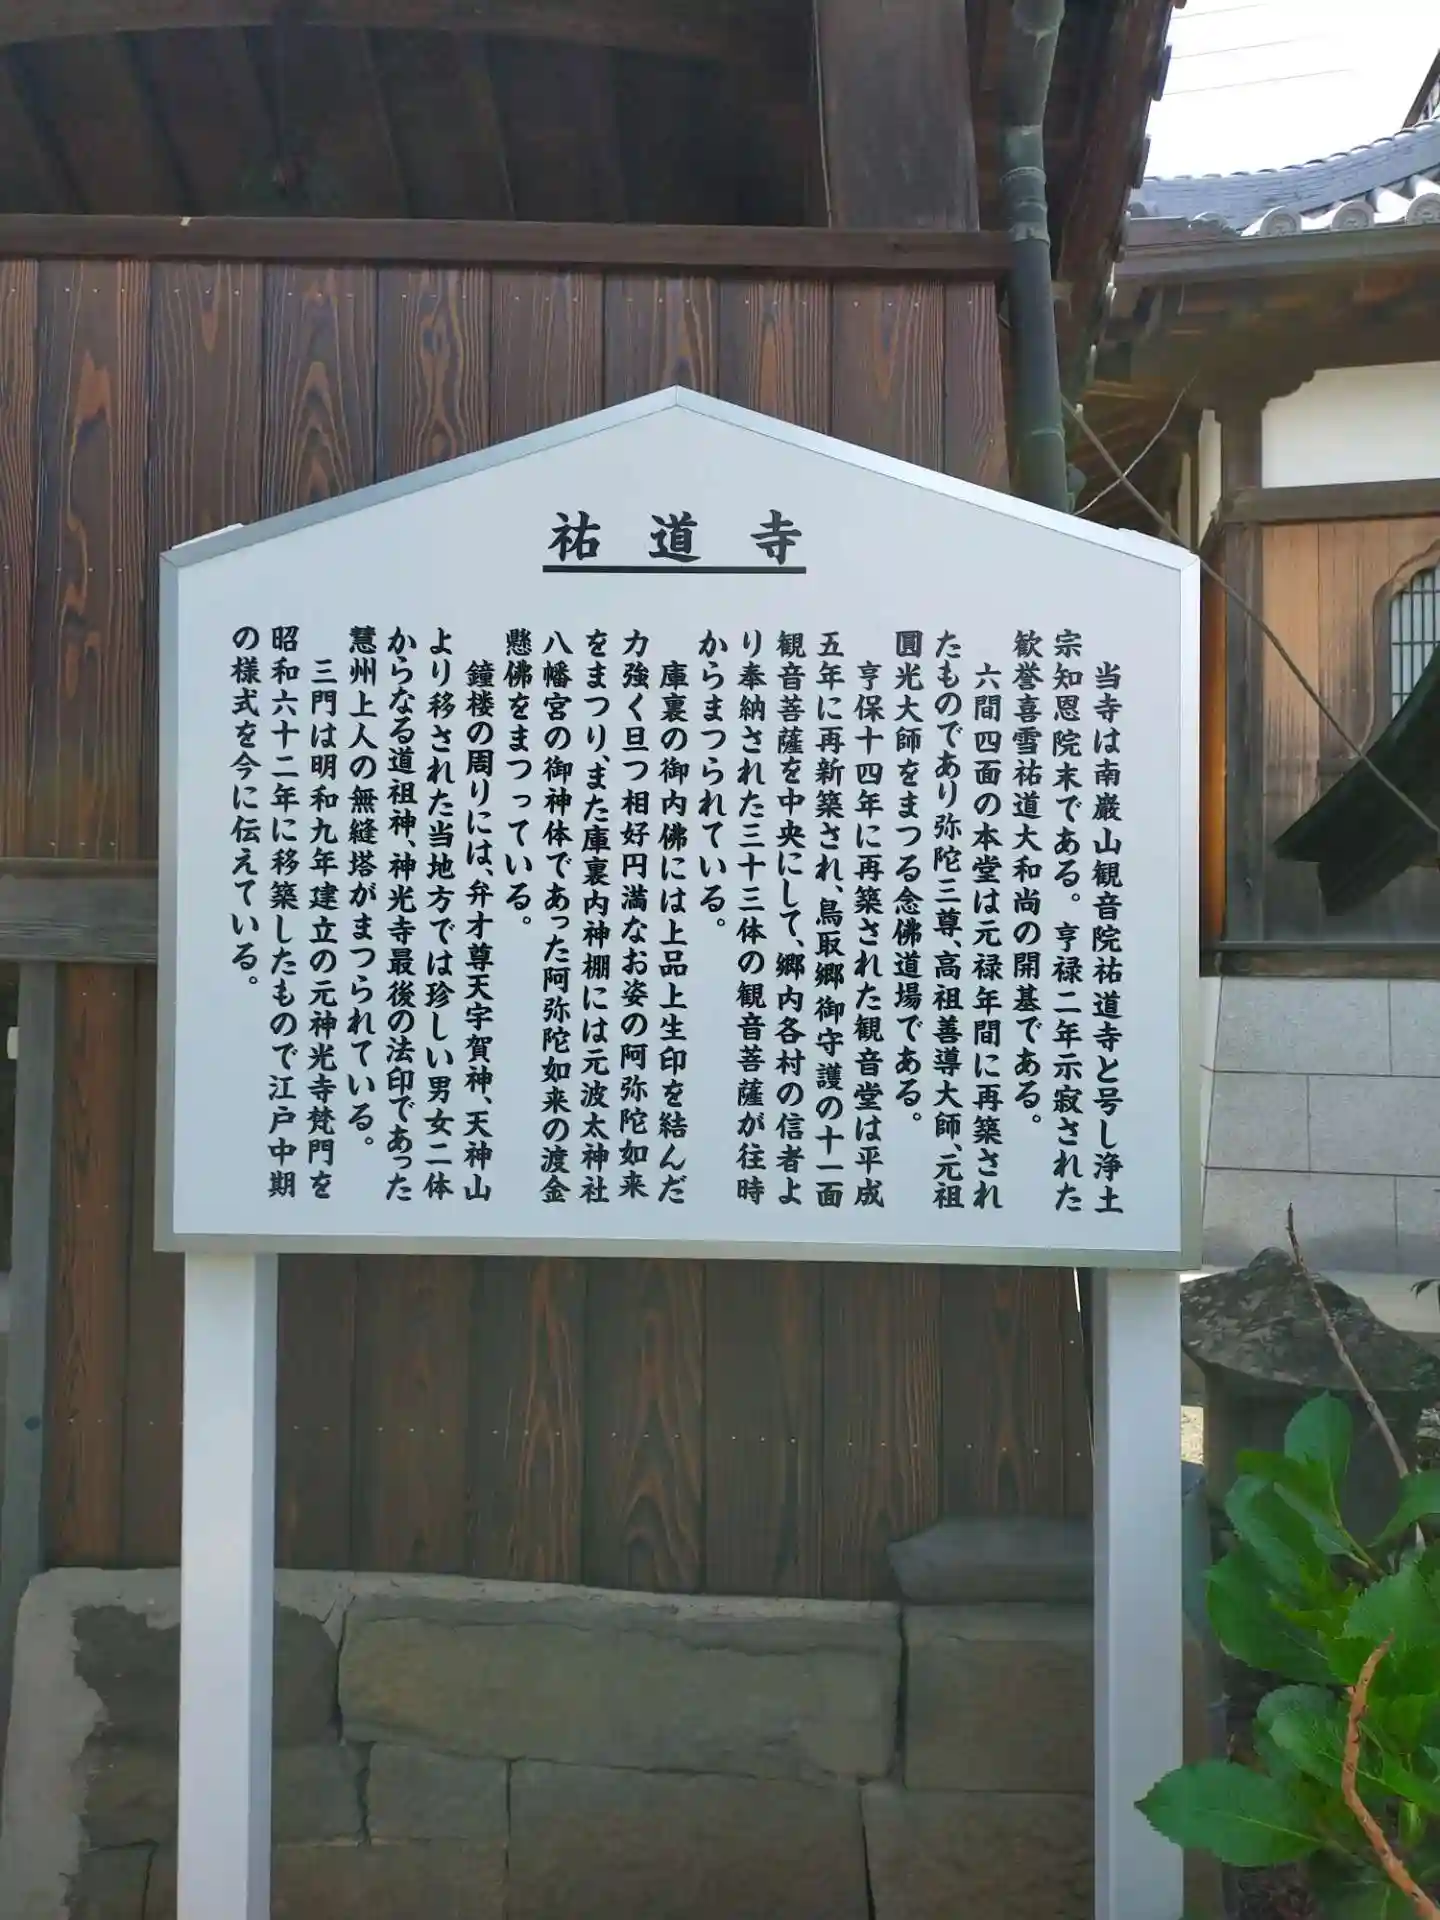 祐道寺
当寺は南巌山観音院祐道寺と号し浄土
宗知恩院末である。亨禄二年示寂された
歓誉喜雪祐道大和尚の開基である。
六間四面の本堂は元禄年間に再築され
たものであり弥陀三尊、高祖善導大師、元祖
圓光大師をまつる念佛道場である。
亨保十四年に再築された観音堂は平成
五年に再新築され、鳥取郷御守護の十一面
観音菩薩を中央にして、郷内各村の信者よ
り奉納された三十三体の観音菩薩が往時
からまつられている。
庫裏の御内佛には上品上生印を結んだ
力強く旦つ相好円満なお姿の阿弥陀如来
をまつり、また庫裏内神棚には元波太神社
八幡宮の御神体であった阿弥陀如来の渡金
懸佛をまつっている。
鐘楼の周りには、弁才尊天宇賀神、天神山
より移された当地方では珍しい男女二体
からなる道祖神、神光寺最後の法印であった
慧州上人の無縫塔がまつられている。
三門は明和九年建立の元神光寺梵門を
昭和六十二年に移築したもので江戸中期
の様式を今に伝えている。